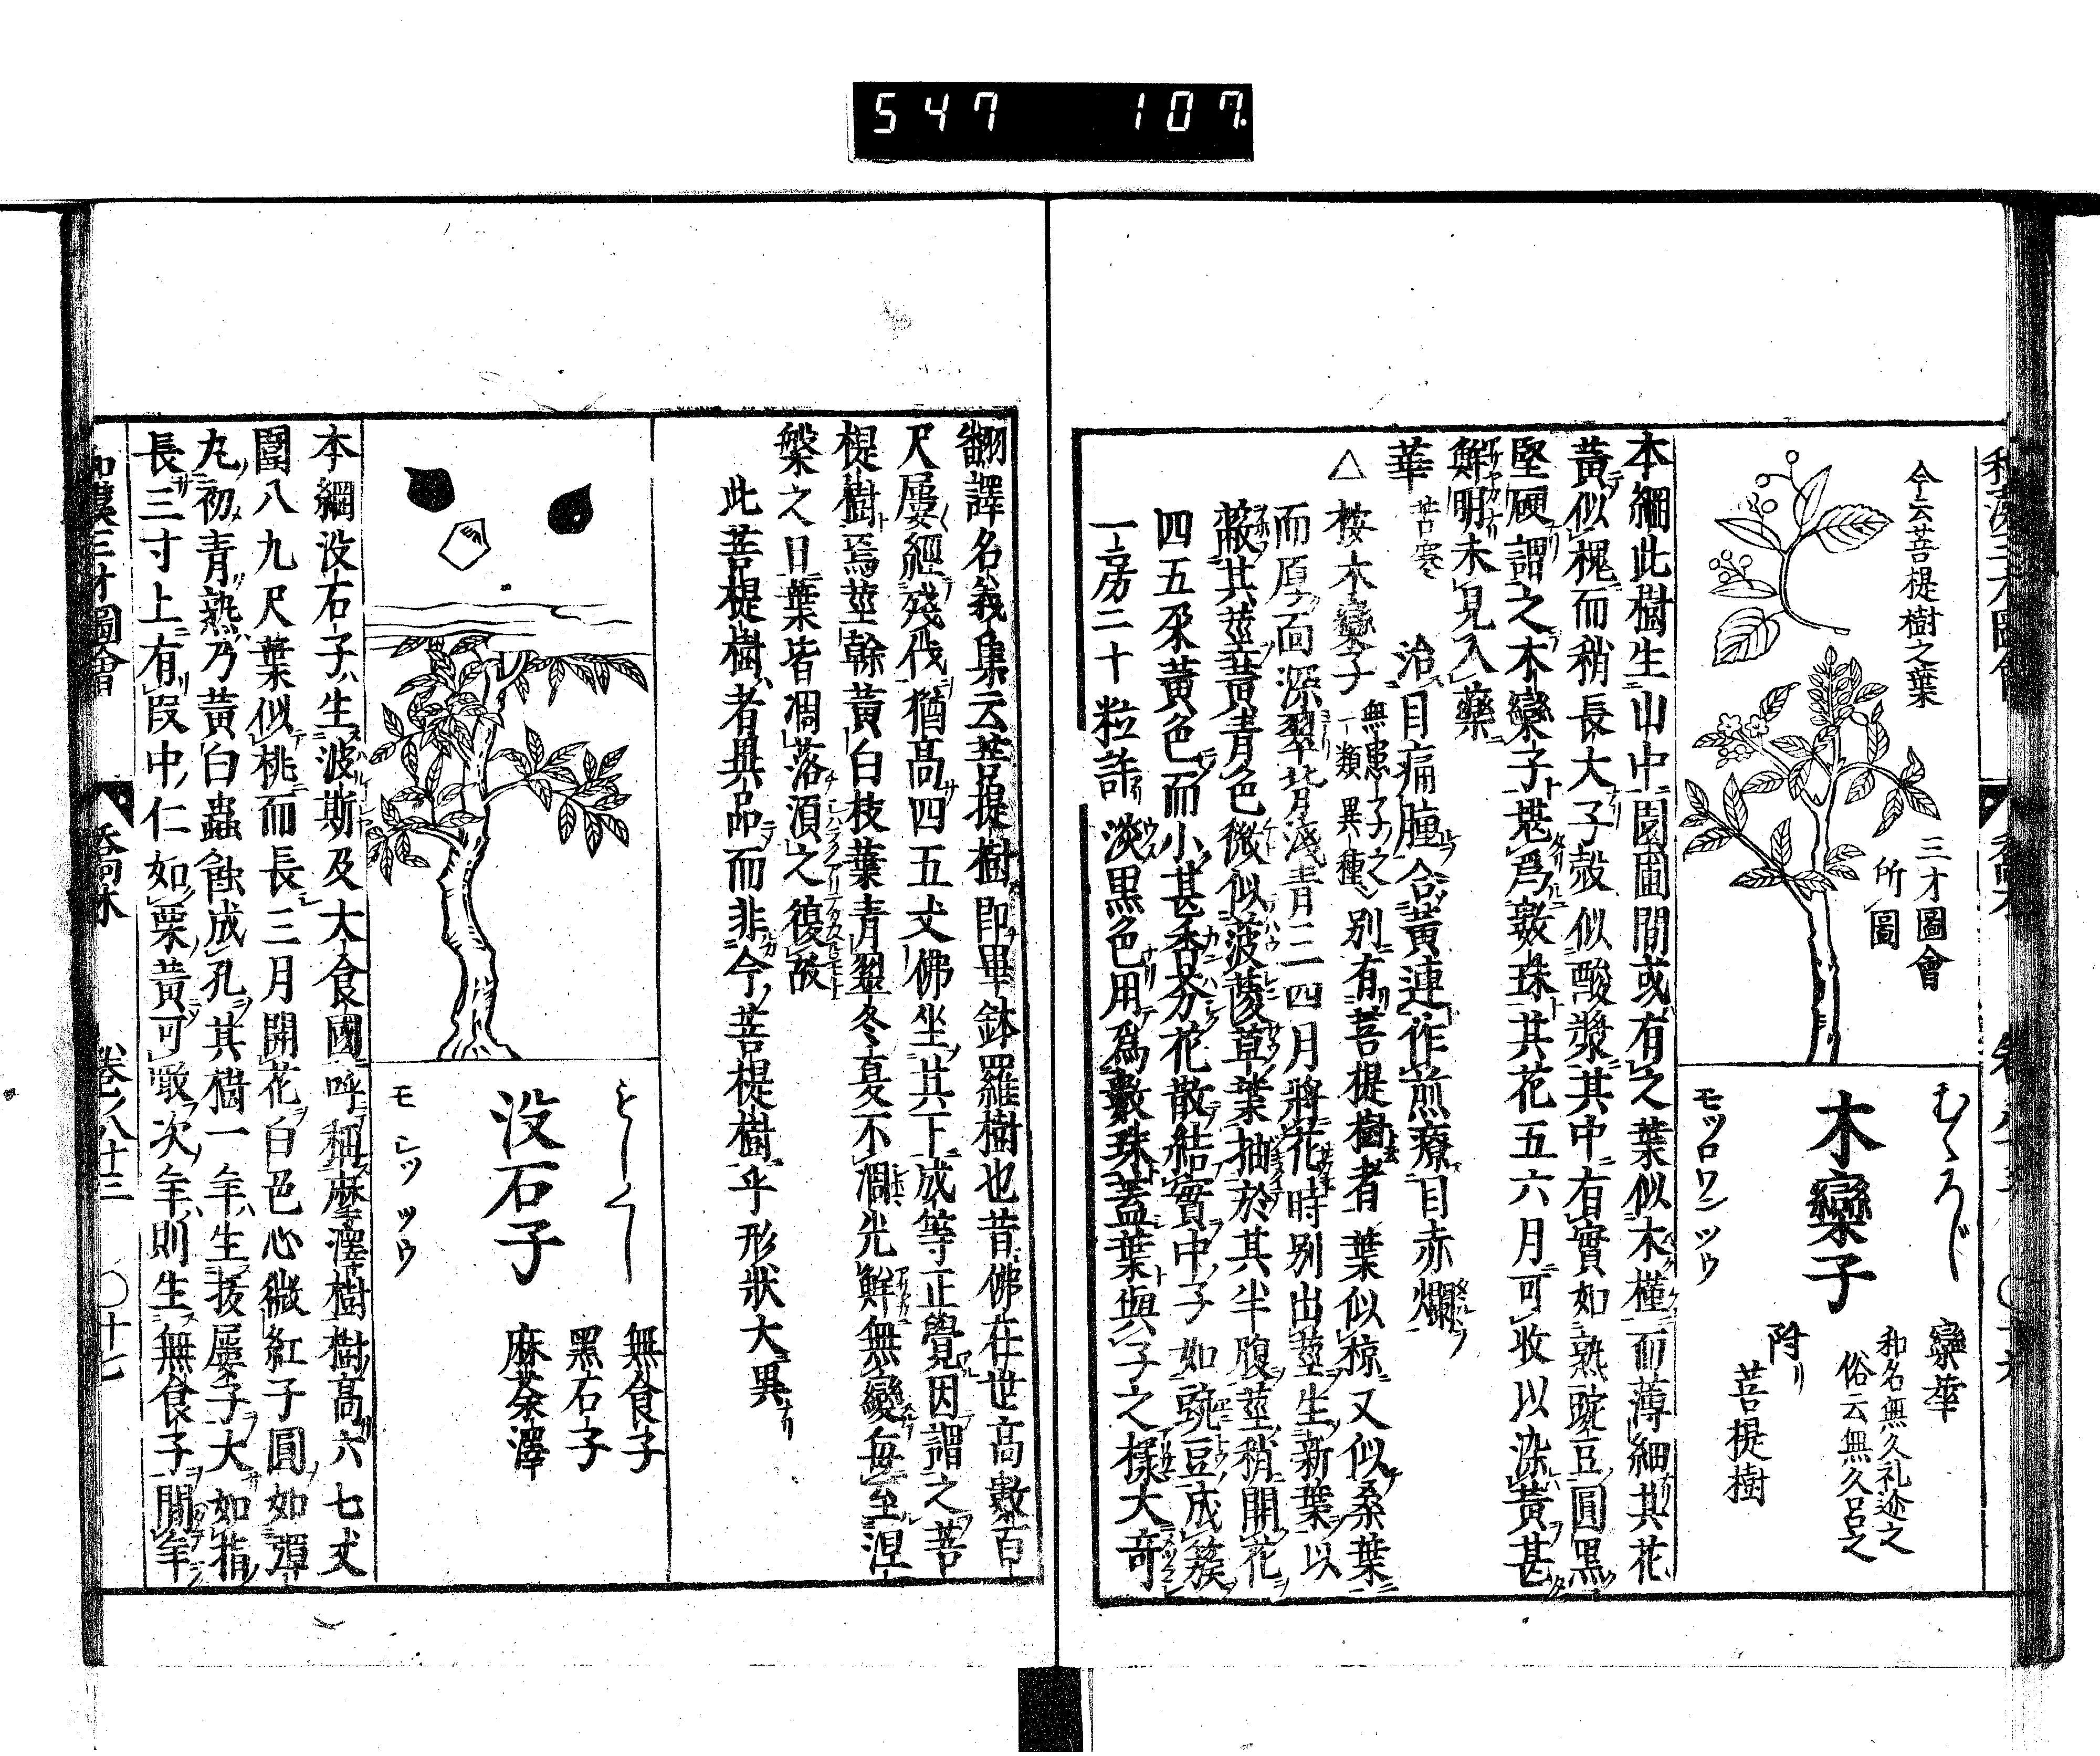 547 107.
今云菩提樹之葉
三才圖會
所圖
むくろじ
木欒子
モツロワンツウ
欒華
和名無久礼迩之
俗云無久呂之
附リ
菩提樹
本綱此樹生山中園圃間或有之葉似木槿而薄細其花
黃似槐而稍長大子殼似酸漿其中有實如熟豌豆圓黑
堅硬謂之木欒子堪爲數珠其花五六月可收以染黃甚
鮮明未見入藥
華 苦寒 治目痛腫合黃連作煎療目赤爛
△ 按木欒子 無患子之一類異種 別有菩提樹者葉似椋又似桑葉
而厚面深翠背淺青三四月將花時別出莖生新葉以
蔽其莖黃青色微似菠薐草葉抽於其半腹莖稍開花
四五朶黃色而小甚香芬花散結實中子如豌豆成簇
一房二十粒許淡黑色用爲數珠蓋葉與子之樣大奇
翻譯名義集云菩提樹即畢鉢羅樹也昔佛在世高數百
尺屢經殘伐猶高四五丈佛坐其下成等正覺因謂之菩
提樹焉莖幹黃白枝葉青翠冬夏不凋光鮮無變毎至涅
槃之日葉皆凋落須之復故
此菩提樹者異品而非今菩提樹乎形狀大異
もしくし
没石子
モ シツ ツウ
無食子
黑石子
麻荼澤
本綱没石子生波斯及大食國呼稱摩澤樹樹高六七丈
圍八九尺葉似桃而長三月開花白色心微紅子圓如彈
丸初青熟乃黃白蟲蝕成孔其樹一年生抜屢子大如指
長三寸上有叚中仁如栗黃可噉次年則生無食子間年
和漢三才圖會 喬木 卷ノ八十三 〇十七